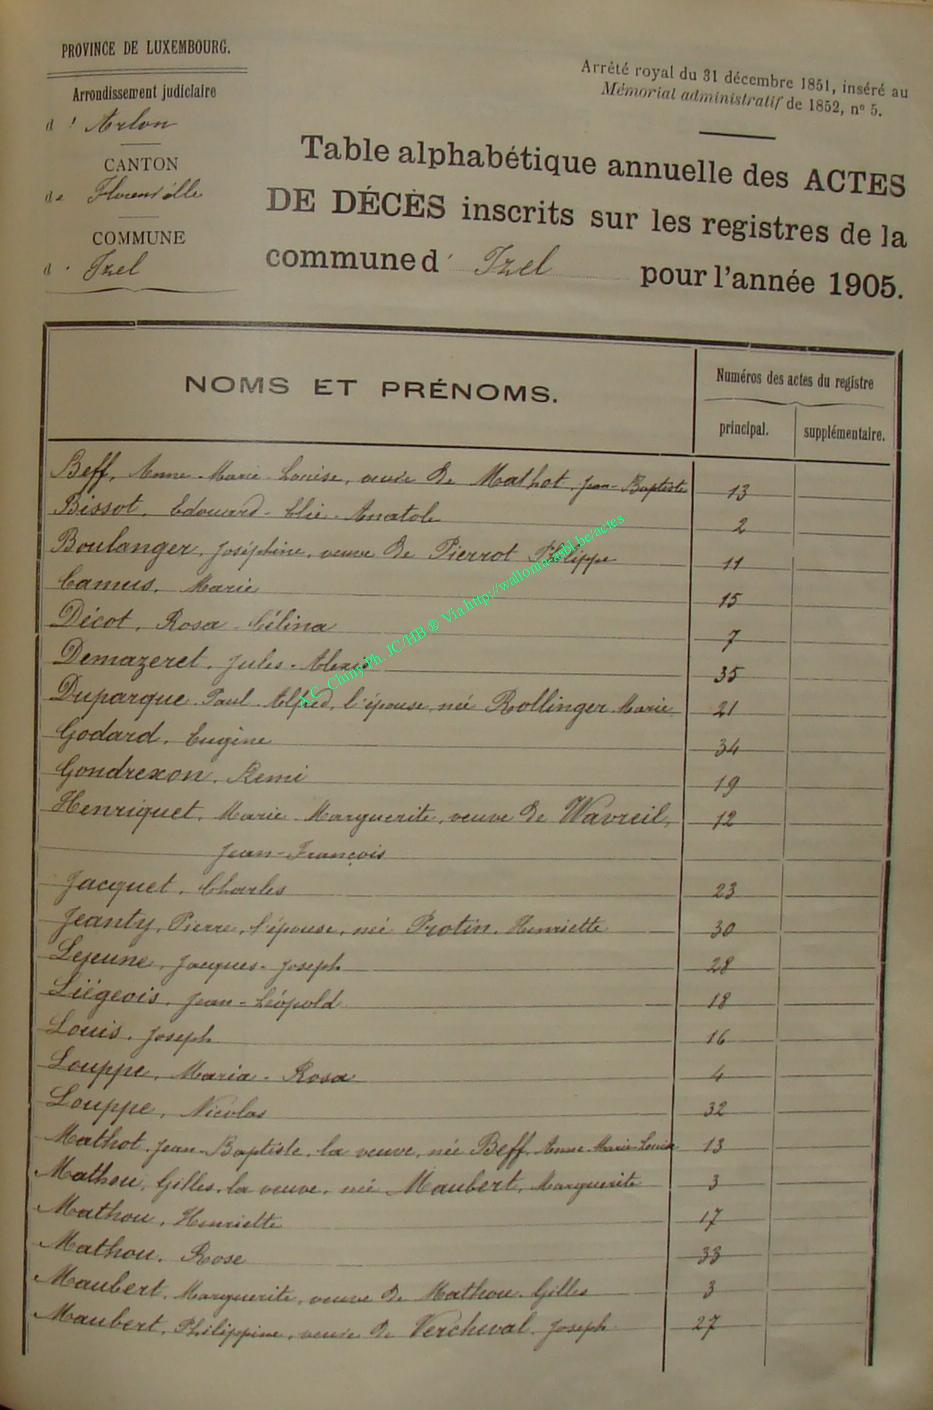 PROVINCE DE LUXEMBOURG.
Arrondissement judiciaire
d' Arlon
CANTON
de Florenville
COMMUNE
d' Izel
Arrêté royal du 31 décembre 1851, inséré au
Mémorial administratif de 1852, nº 5.
Table alphabétique annuelle des ACTES
DE DÉCÈS inscrits sur les registres de la
commune d' Izel pour l'année 1905.
NOMS ET PRÉNOMS.
Numéros des actes du registre
principal. supplémentaire.
Beff, Anne-Marie-Louise, veuve de Mathot, Jean-Baptiste 13
Bissot, Edouard-Elie-Anatole 2
Boulanger, Joséphine, veuve de Pierrot Philippe 11
Camus, Marie 15
Décot, Rosa-Célina 7
Demazeret, Jules-Alexis 35
Duparque Paul-Alfred, l'épouse, née Rollinger Marie 21
Godard, Eugène 34
Gondrexon, Remi 19
Henriquet, Marie-Marguerite, veuve de Wavreil, 12
Jean-François
Jacquet, Charles 23
Jeanty, Pierre, l'épouse, née Protin, Henriette 30
Lejeune, Jacques-Joseph 28
Liégeois, Jean-Léopold 18
Louis, Joseph 16
Louppe, Maria-Rosa 4
Louppe, Nicolas 32
Mathot, Jean-Baptiste, la veuve, née Beff, Anne-Marie-Louise 13
Mathou, Gilles, la veuve, née Maubert, Marguerite 3
Mathou, Henriette 17
Mathou, Rose 33
Maubert, Marguerite, veuve de Mathou, Gilles 3
Maubert, Philippine, veuve de Vercheval, Joseph 27
J.C. Chiny Ph. JC/HB © Via http://wallonia-asbl.be/actes